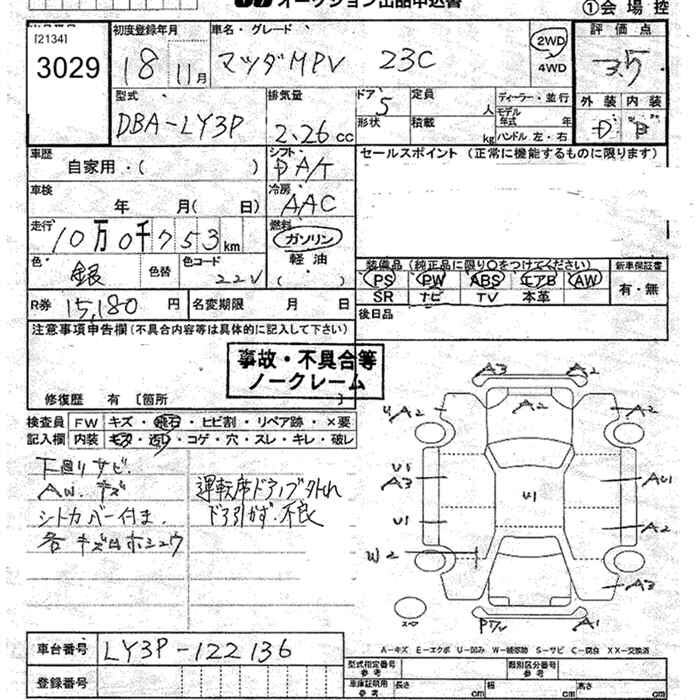 オークション出品申込書
①会場控
[2134]
3029
初度登録年月
18 11月
車名・グレード
マツダMPV 23C
2WD
4WD
評価点
3.5
外装 内装
D B
型式
DBA-LY3P
排気量
2.26cc
ドア 5
定員 人
形状
積載 kg
ディーラー・並行
モデル年式 年
ハンドル 左・右
車歴
自家用・( )
シフト
A/T
車検
年 月( 日)
冷房
AAC
セールスポイント (正常に機能するものに限ります)
走行
10万0千753km
燃料
ガソリン
軽油
( )
色・
銀
色替
色コード
22V
装備品(純正品に限り○をつけてください)
PS PW ABS エアB AW
SR ナビ TV 本革
新車保証書
有・無
R券 15,180円
名変期限 月 日
後日品
注意事項申告欄(不具合内容等は具体的に記入して下さい)
事故・不具合等
ノークレーム
修復歴 有 〔箇所
検査員
記入欄
FW キズ・飛石・ヒビ割・リペア跡・×要
内装 モタ・汚レ・コゲ・穴・スレ・キレ・破レ
下回りサビ
AW.キズ
シートカバー付き
各キズ凹ホシュウ
運転席ドライブ外れ
不良
A3 A2
A2
A2
A2
U1
A3
U1
U1
AU1
A2
W2
A3
A1
A-キズ E-エクボ U-凹み W-補修跡 S-サビ C-腐食 XX-交換済
車台番号
LY3P-122136
登録番号
型式指定番号
参考
類別区分番号
参考
車庫証明用
参考
長さ cm
幅 cm
高さ cm